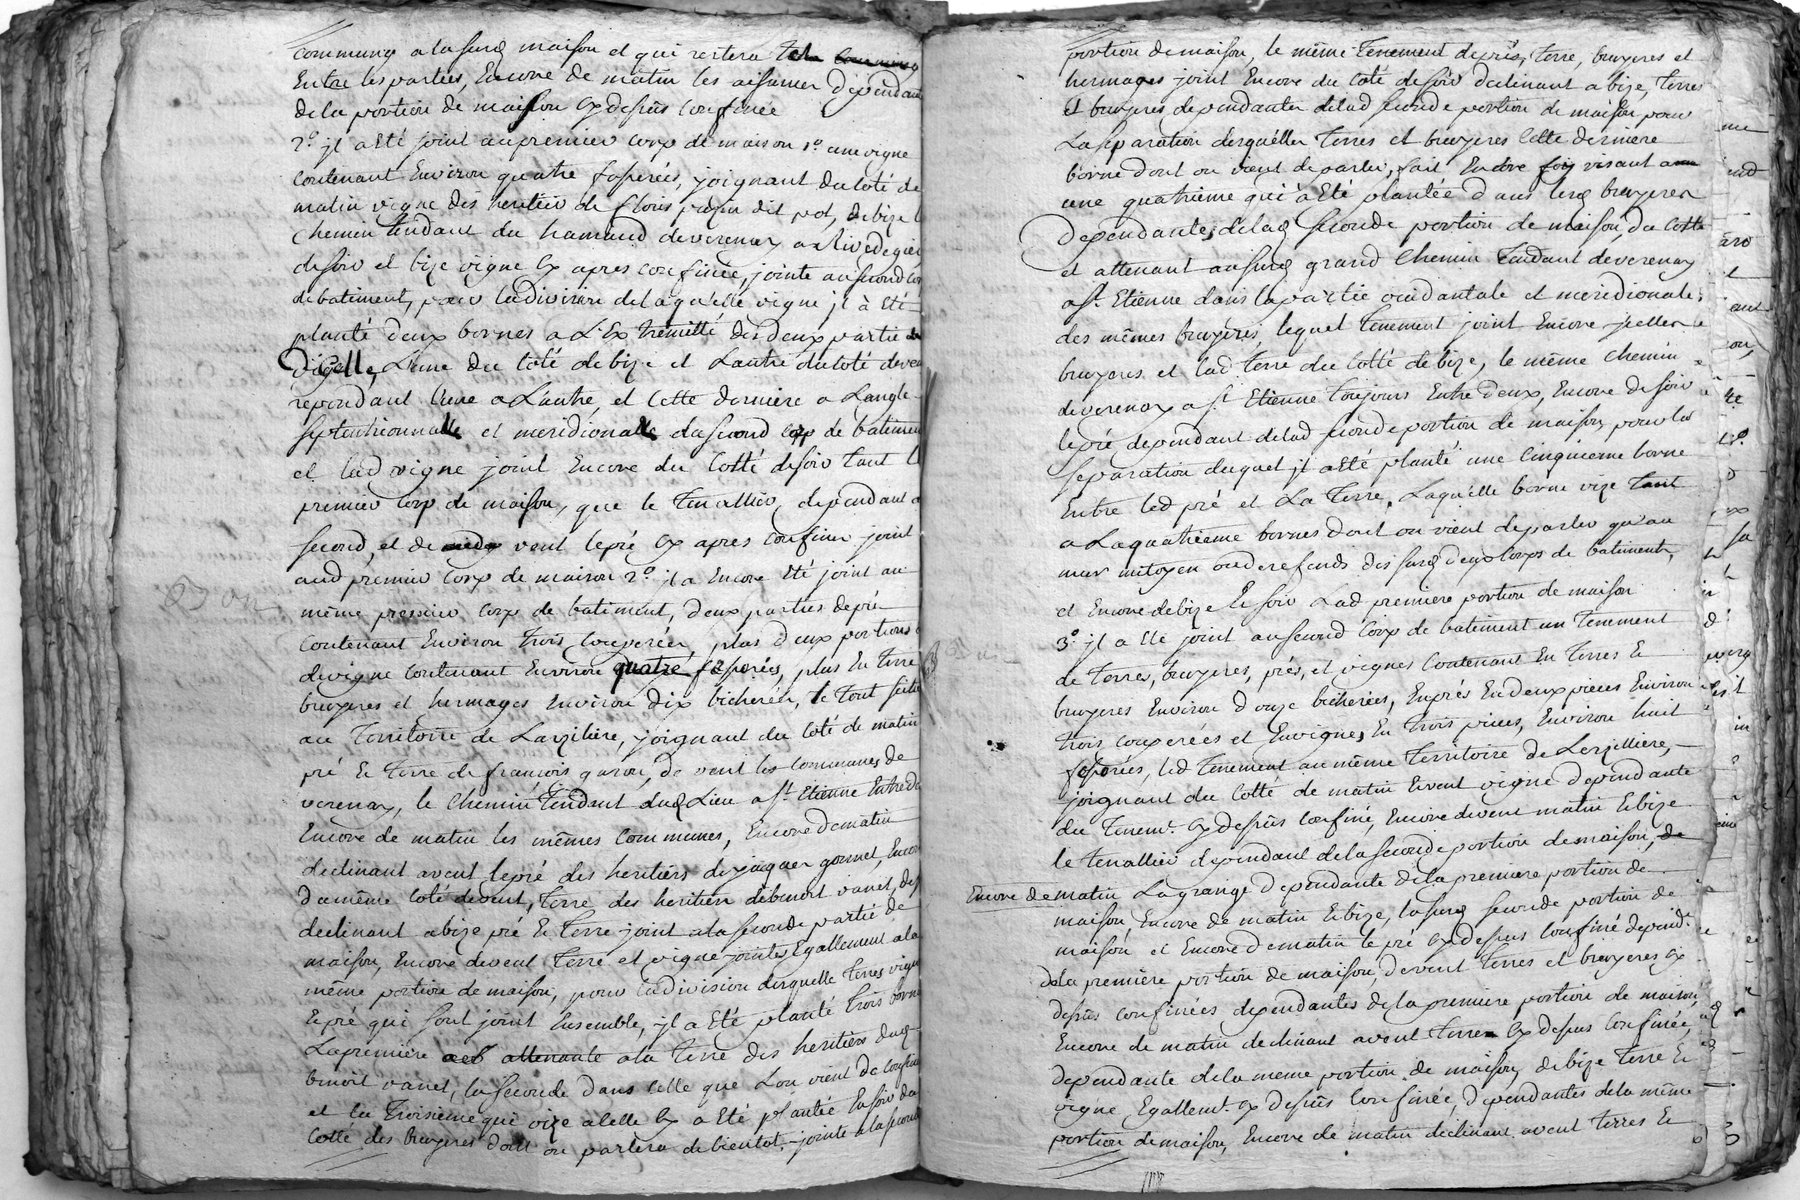 commune a la susd maison et qui restera
Entre les parties, Encore de matin les aisances dependan
de la portion de maison cy dessus confinée
2.º jl a eté joint au premier corp de maison 1.º une vigne
contenant Environ quatre fosserées, joignant du coté de
matin vigne des heritiers de de bize l
chemin tendant du hamaud de verenay a Rivedegier
de soir et bize vigne cy apres confinée, jointe au second cor
de batiment, pour la division de laquelle vigne jl à eté
planté deux bornes a L'Extremitté des deux partie
D'jcelle, L'une du coté de bize et Lautre du coté de ven
répondant lune a Lautre et cette derniere a Langle
septentrionnalle et meridionalle du second corp de batimen
et lad vigne joint Encore du Cotté de soir tant l
premier corp de maison, que le tinallier, dependant d
second, et de vent le pré cy apres confiner joint
aud premier corp de maison 2.º jl a Encore Eté joint au
même premier corp de batiment, deux parties de pré
contenant Environ trois couperées, plus deux portions
de vigne contenant Environ quatre fosserées, plus En terre
bruyeres et hermages Environ dix bicherées, le tout situé
au Territoire de Larzilière, joignant du coté de matin
pré Et terre de françois garon, de vent les communes de
verenay, le chemin tendant dud Lieu a S.t Etienne Entre d
Encore de matin les mêmes communes, Encore de matin
declinant a vent le pré des heritiers de jaques gonnet, Encor
du même coté de vent, Terre des heritiers de benoit vanel, de
declinant a bize pré Et Terre joint a la seconde partie de
maison, Encore de vent Terre et vigne jointes Egallement a la
même portion de maison, pour la division desquelle terres vign
Et pré qui sont joint Ensemble, jl a Eté planté trois borne
La premiere attenante a la Terre des heritiers dud
benoit vanel, la seconde dans celle que Lon vient de confine
et la Troisieme qui vize a celle cy a Eté plantée En soir du
Cotté des bruyeres dont on parlera de bientot jointe a la second
portion de maison, le même Tenement de prés, terre, bruyeres et
hermages joint Encore du Coté de soir declinant a bize, terres
Et bruyeres dependantes de lad seconde portion de maison pour
La separation desquelles Terres et bruyeres Cette derniere
borne dont on vient de parler, fait Encore visant a
une quatrieme qui à Eté plantée dans les bruyeres
Dependantes de lad seconde portion de maison, du Cotté
et attenant au susd grand Chemin Tendant de verenay
a S.t Etienne dans la partie occidantale et meridionale
des mêmes bruyeres, lequel Tenement joint Encore jcelles
bruyeres et lad Terre du Cotté de bize, le même chemin
de verenay a S.t Etienne toujours Entre deux, Encore de soir
le pré dependant de lad seconde portion de maison, pour la
separation duquel jl a Eté planté une Cinquieme borne
Entre led pré et La Terre, Laquelle borne vize tant
a La quatrieme bornes dont on vient de parler qu'au
mur mitoyen ou de refends des susd deux Corps de batiments,
et Encore de bize Et soir Lad premiere portion de maison
3.º jl a Eté joint au second Corp de batiment un Tenement
de Terres, bruyeres, prés, et vignes Contenant En Terres Et
bruyeres Environ douze bicherées, En prés En deux pieces Environ
trois couperées et En vignes En trois pieces, Environ huit
fosserées, led Tenement au même Territoire de Larzilliere,
joignant du Cotté de matin Et vent vigne dependante
du Tenem.t cy dessus confiné, Encore de vent matin Et bize
le tenallier dependant de la seconde portion de maison, de
Encore de matin La grange dependante de la premiere portion de
maison, Encore de matin Et bize, la susd seconde portion de
maison et Encore de matin le pré cy dessus Confiné depend.t
de la premiere portion de maison, de vent Terres et bruyeres cy
dessus confinées dependantes de la premiere portion de maison,
Encore de matin declinant a vent terre cy dessus Confinée,
dependante de la meme portion de maison, de bize Terre Et
vigne Egallem.t cy dessus Confinée, dependantes de la même
portion de maison, Encore de matin declinant a vent terres Et